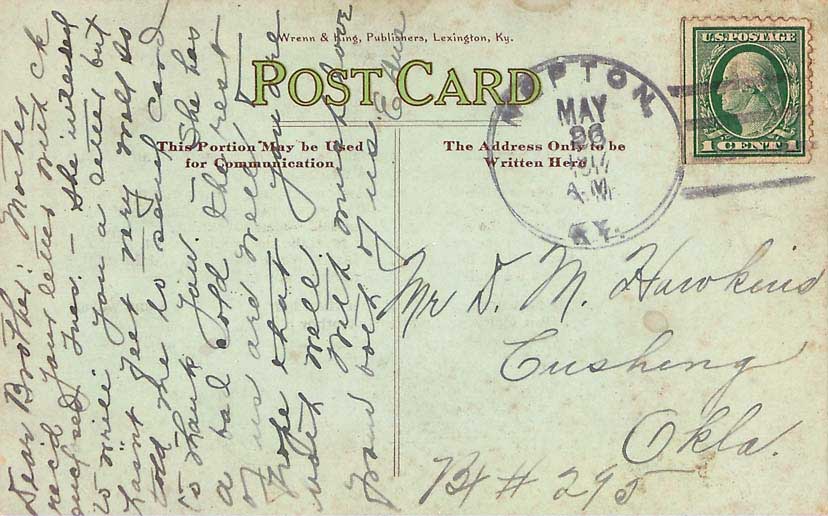 Wrenn & King, Publishers, Lexington, Ky.
POST CARD
This Portion May be Used
for Communication
The Address Only to be
Written Here
U.S. POSTAGE
1 CENT 1
MAY
A.M.
KY.
Dear Brother: Mother
rec'd your letter with ck
enclosed, Tues. - She intended
to write you a letter but
hasn't feet very well so
told me to send card
to thank you. She has
a bad cold. The rest
of us are well.
Hope that you are
well.
With much love
from both of us. Edna
Mr D. M. Hawkins
Cushing
Okla.
Bx # 295